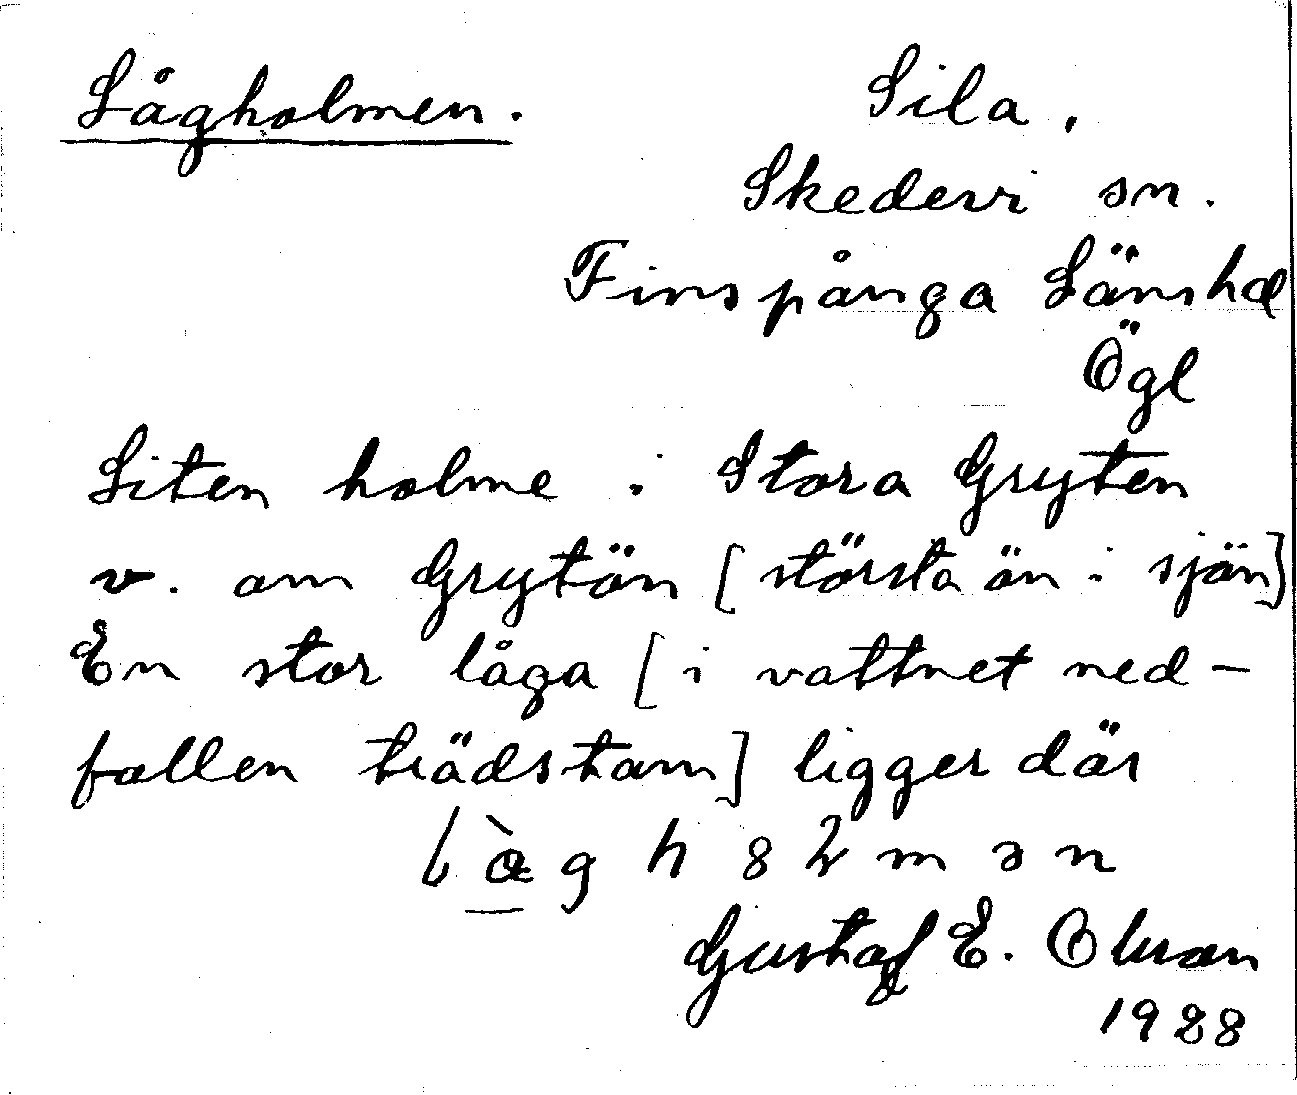 Lågholmen. Sila.
Skedevi sn.
Finspånga Länshd
Ögl
Liten holme i Stora Gryten
v. om Grytön [största ön i sjön]
En stor låga [i vattnet ned-
fallen trädstam] ligger där
Gustaf E. Olsson
1928